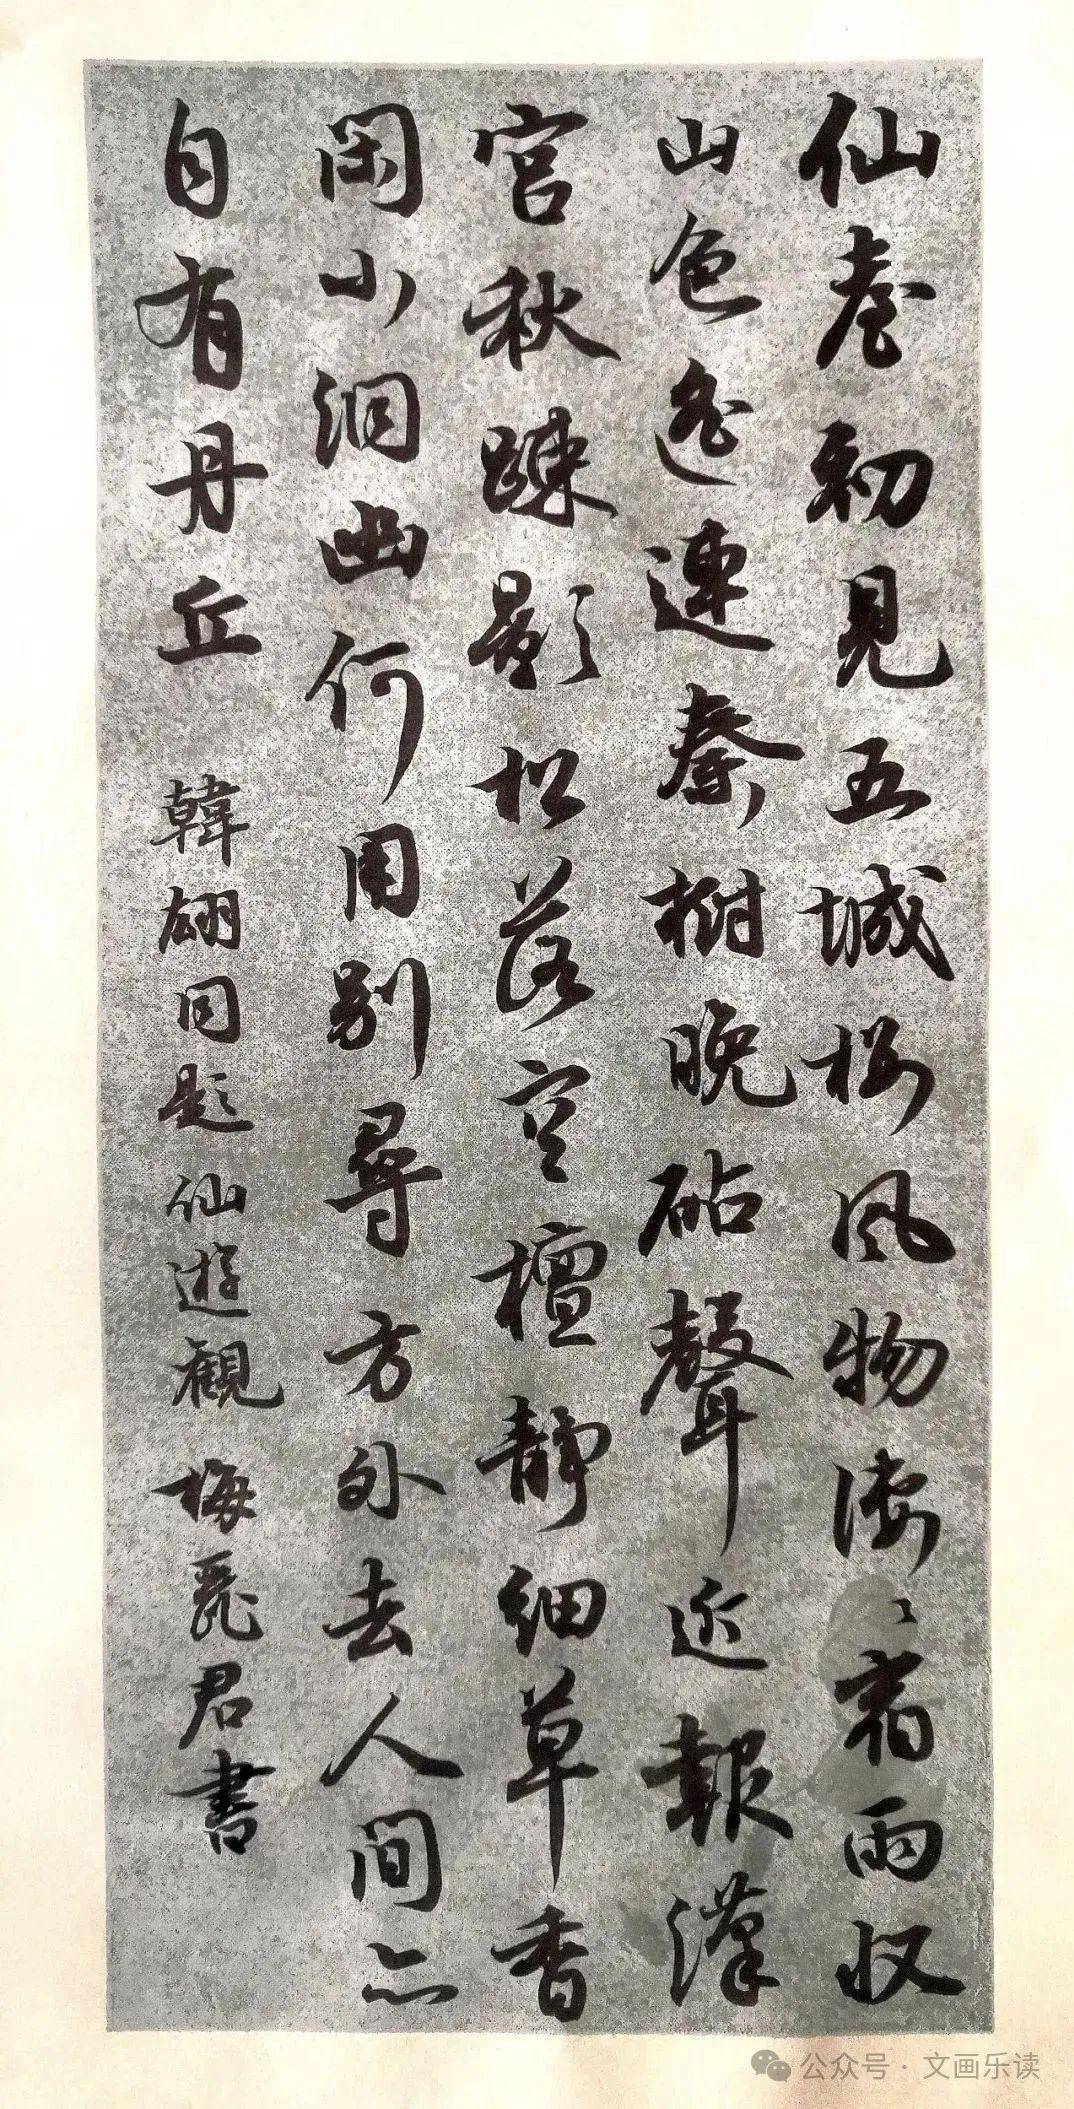 仙臺初見五城樓風物淒淒宿雨收
山色遙連秦樹晚砧聲近報漢
宮秋踈影松落空壇靜細草香
閑小洞幽何用別尋方外去人間亦
自有丹丘
韓翃同題仙遊觀 梅 君書
公众号·文画乐读